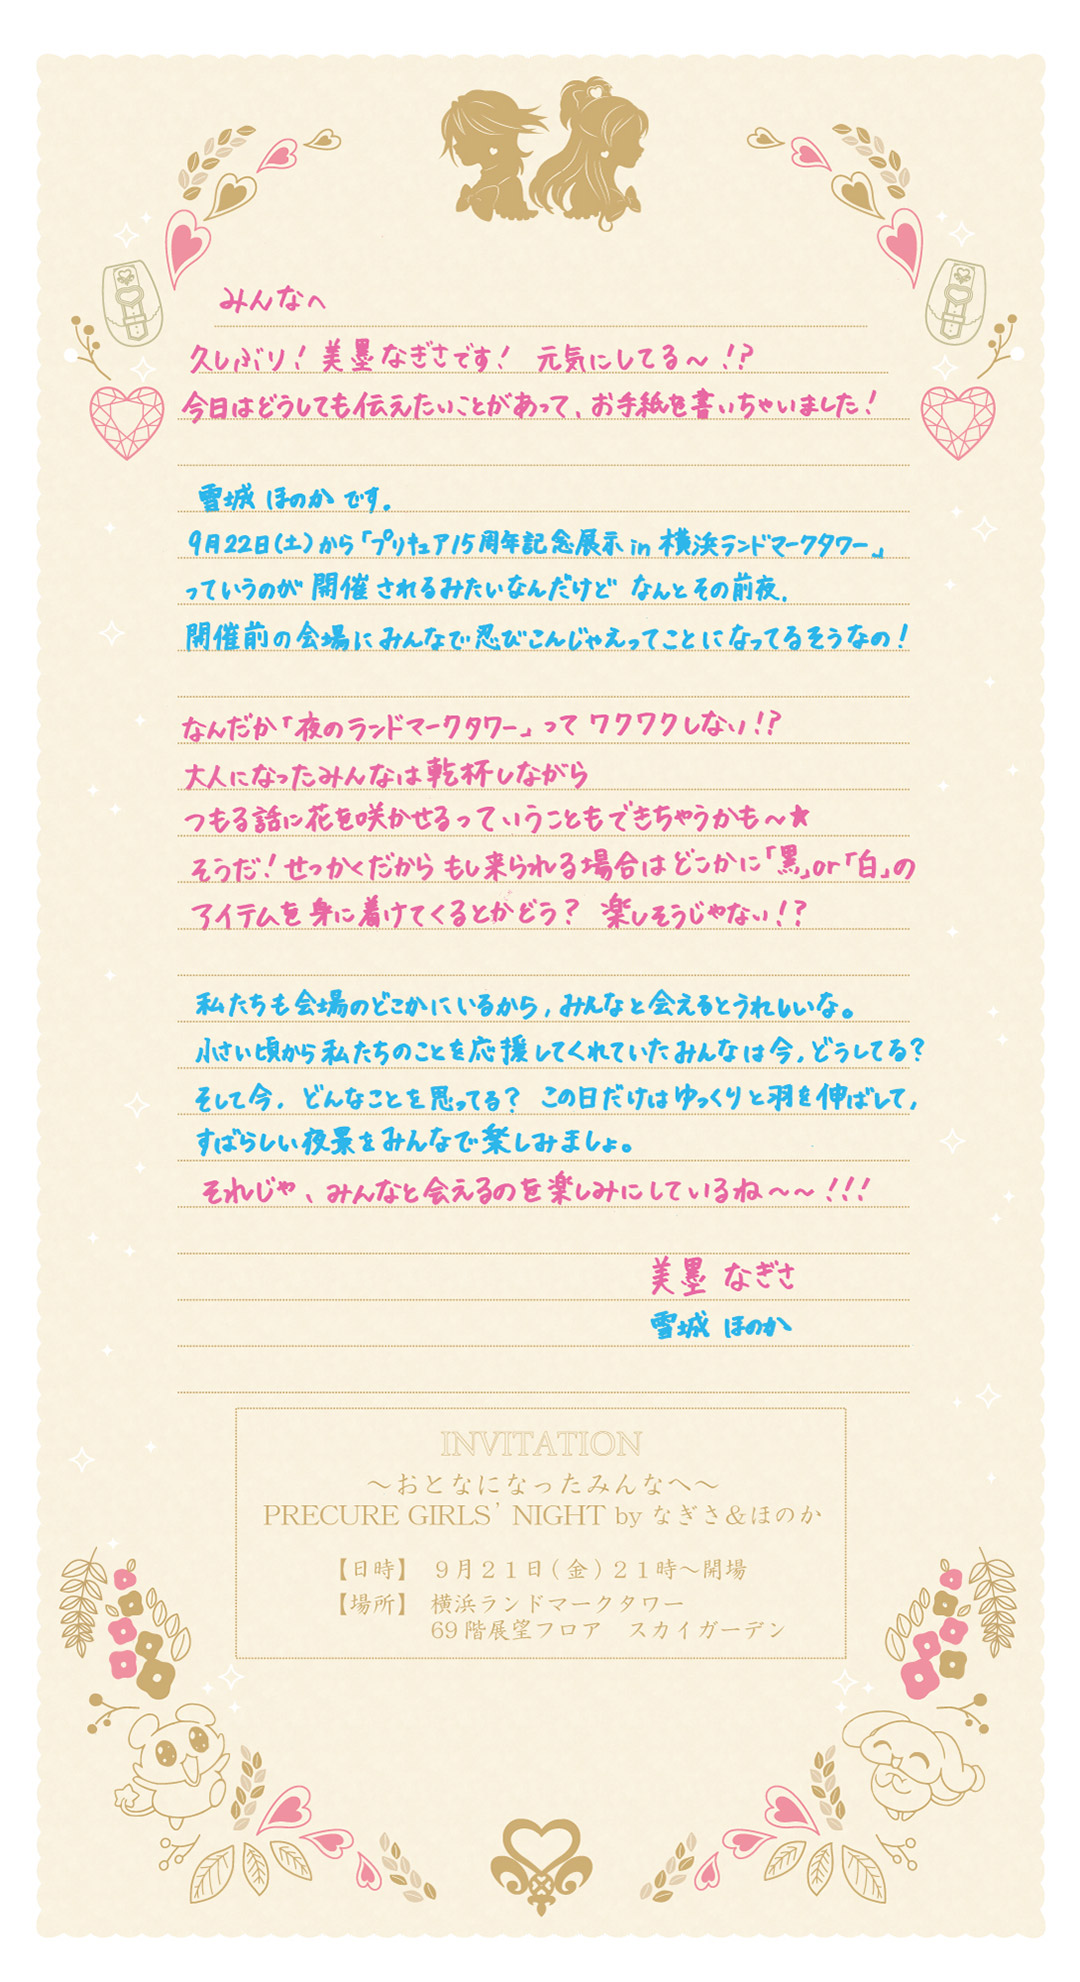 みんなへ
久しぶり！美墨なぎさです！ 元気にしてる～！？
今日はどうしても伝えたいことがあって、お手紙を書いちゃいました！
雪城ほのかです。
9月22日(土)から「プリキュア15周年記念展示in横浜ランドマークタワー」
っていうのが開催されるみたいなんだけど なんとその前夜、
開催前の会場にみんなで忍びこんじゃえってことになってるそうなの！
なんだか「夜のランドマークタワー」って ワクワクしない！？
大人になったみんなは乾杯しながら
つもる話に花を咲かせるっていうこともできちゃうかも～★
そうだ！せっかくだから もし来られる場合はどこかに「黒」or「白」の
アイテムを身に着けてくるとかどう？ 楽しそうじゃない！？
私たちも会場のどこかにいるから、みんなと会えるとうれしいな。
小さい頃から私たちのことを応援してくれていたみんなは今、どうしてる？
そして今、どんなことを思ってる？ この日だけはゆっくりと羽を伸ばして、
すばらしい夜景をみんなで楽しみましょ。
それじゃ、みんなと会えるのを楽しみにしているね～～！！！
美墨 なぎさ
雪城 ほのか
INVITATION
～おとなになったみんなへ～
PRECURE GIRLS' NIGHT by なぎさ&ほのか
【日時】 9月21日(金)21時～開場
【場所】 横浜ランドマークタワー
69階展望フロア スカイガーデン